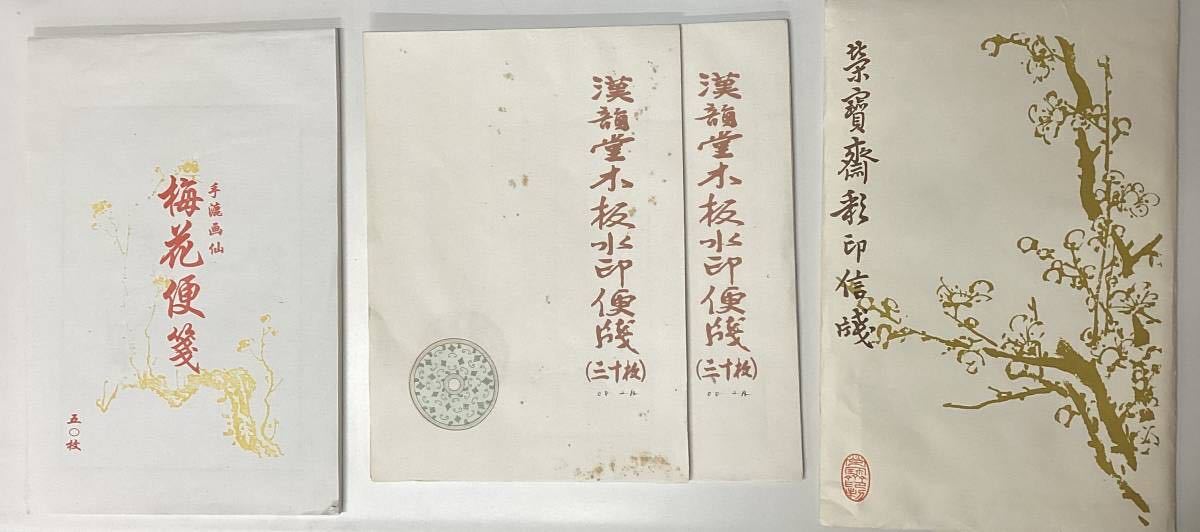 手漉画仙
梅花便箋
五〇枚
漢韻堂木板水印便牋
(三十枚)
漢韻堂木板水印便牋
(三十枚)
榮寶齋彩印信牋